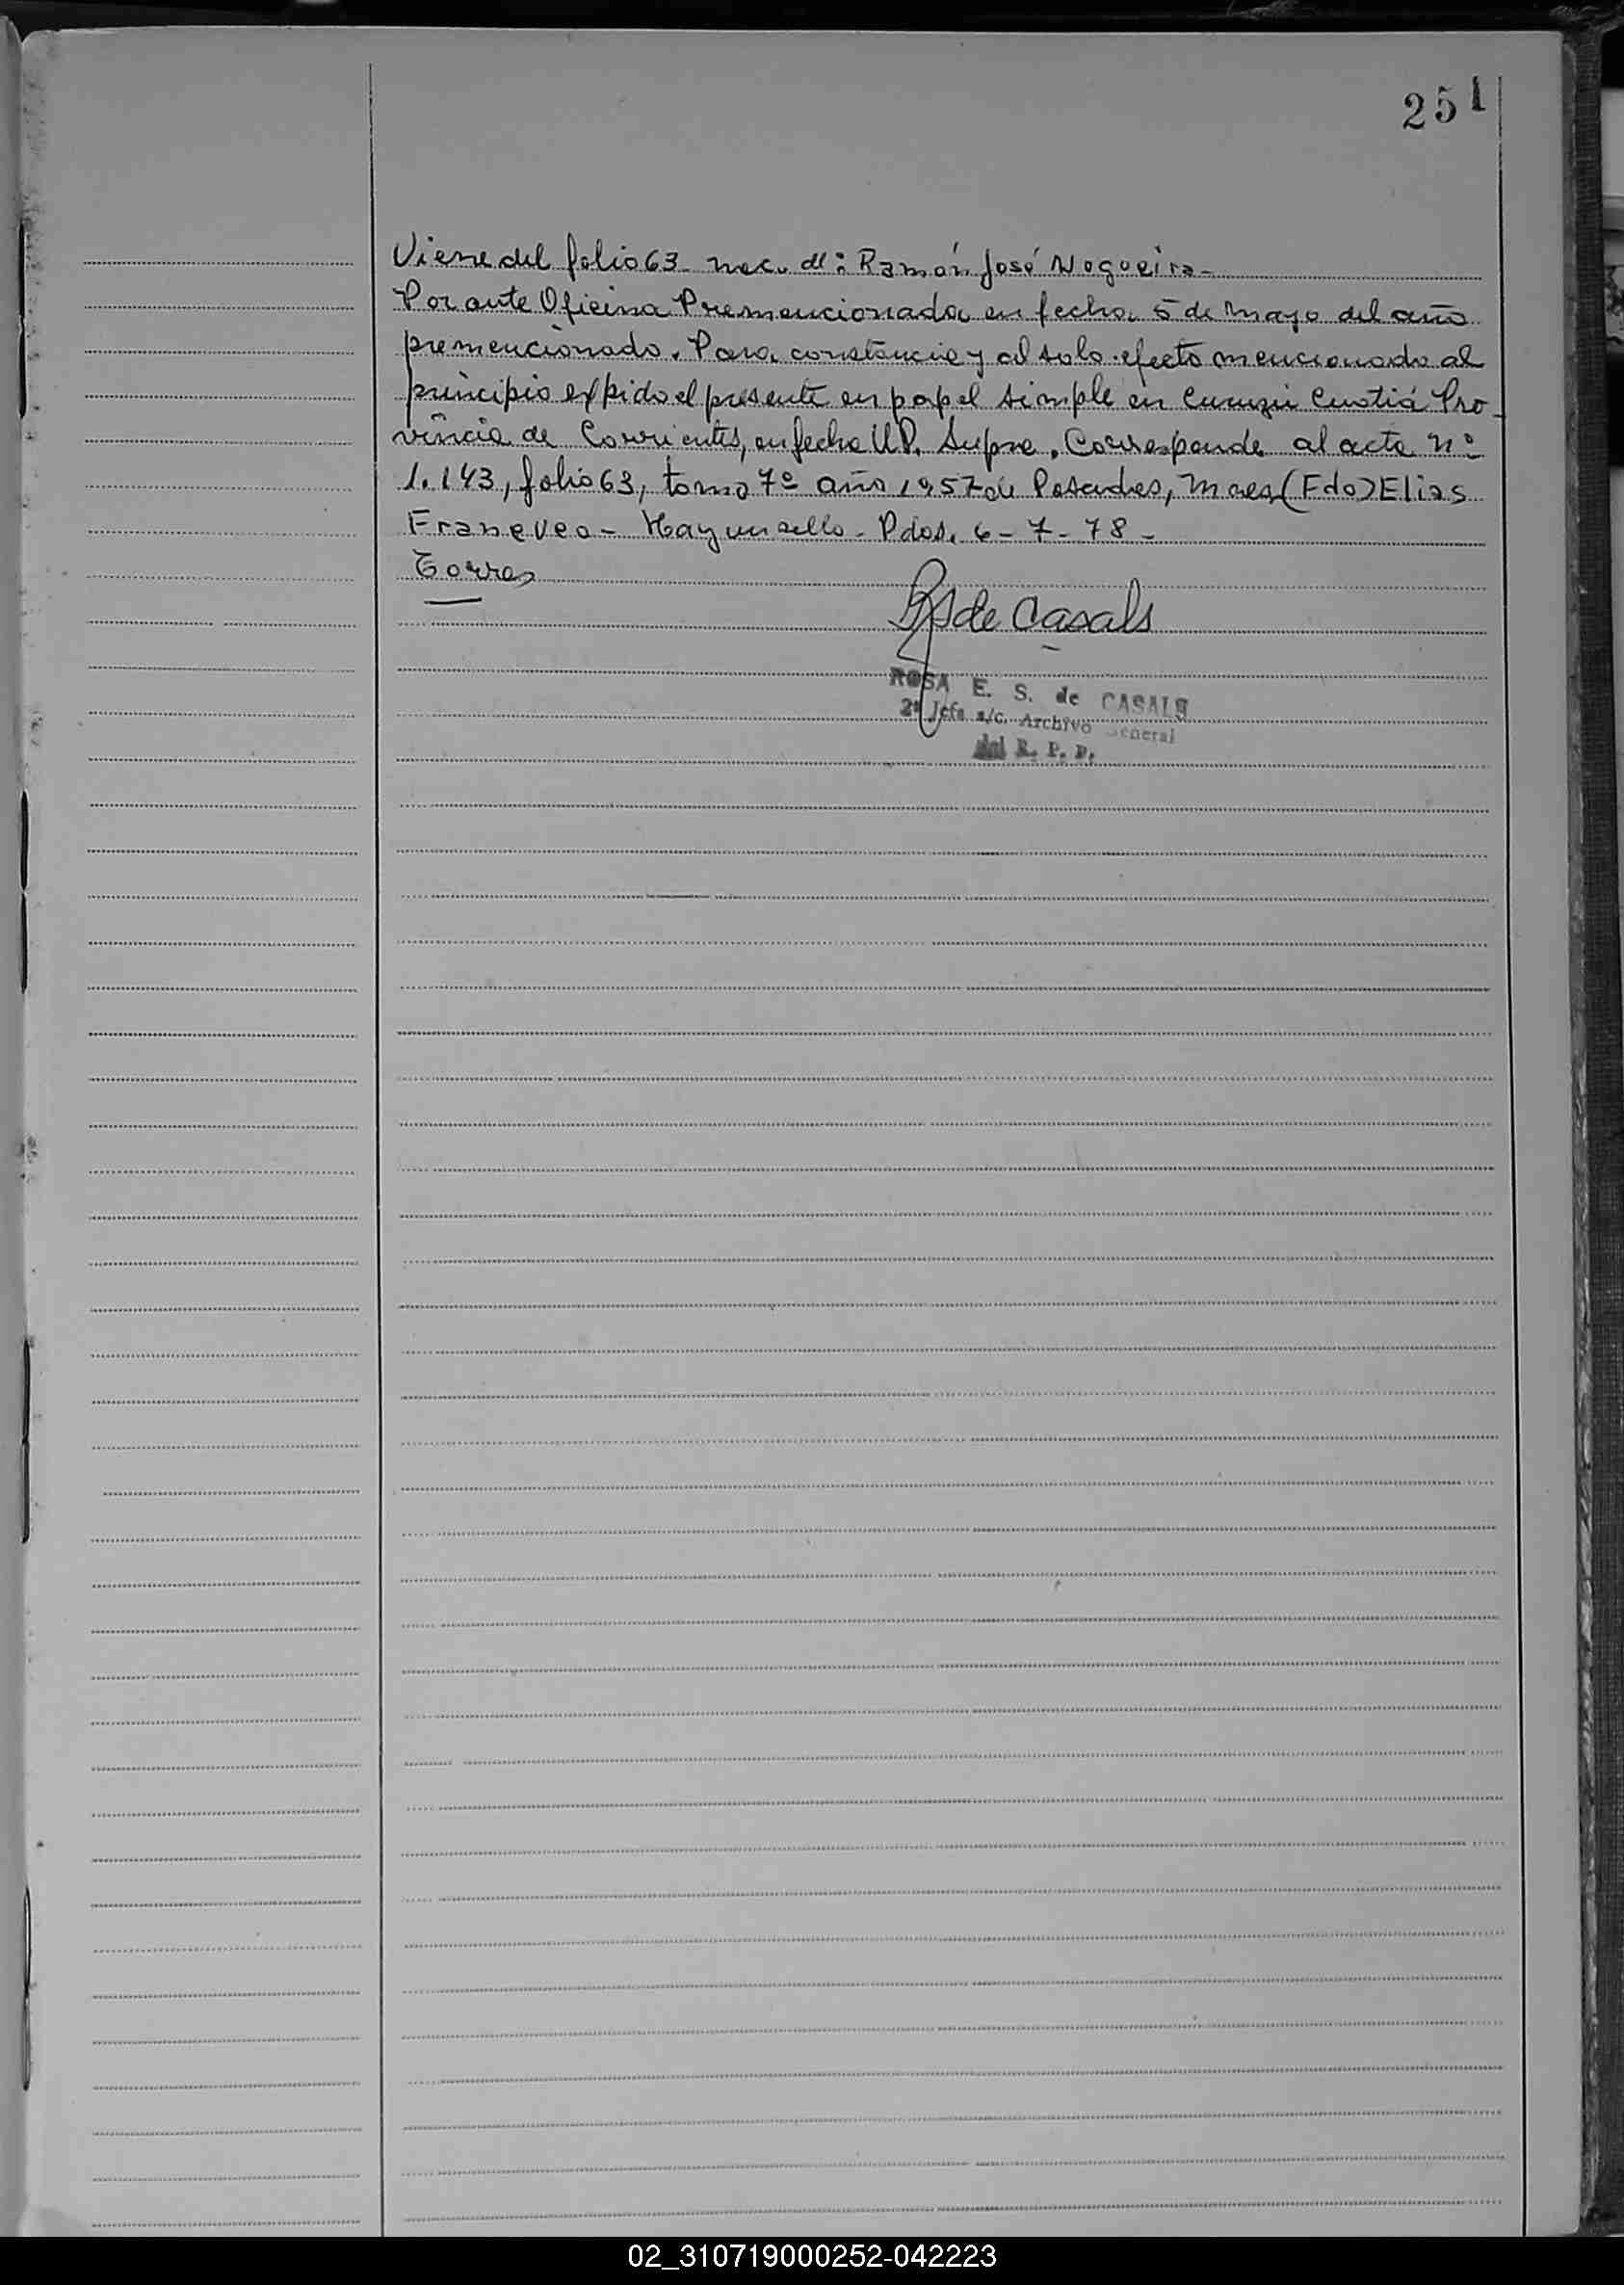 251
Viene del folio 63 - nac. de: Ramón José Nogueira -
Por ante Oficina Premencionada en fecha 5 de Mayo del año
premencionado. Para constancia y al solo efecto mencionado al
principio expido el presente en papel simple en Curuzú Cuatiá Pro-
vincia de Corrientes, en fecha Ut. Supra. Corresponde al acta nº
1.143, folio 63, tomo 7º año 1957 de Posadas, Mnes (Fdo) Elias
- Hay un sello - Pdas. 6 - 7 - 78 -
Torres
de Casals
ROSA E. S. de CASALS
2ª Jefa a/c. Archivo General
del R. P. P.
02_310719000252-042223